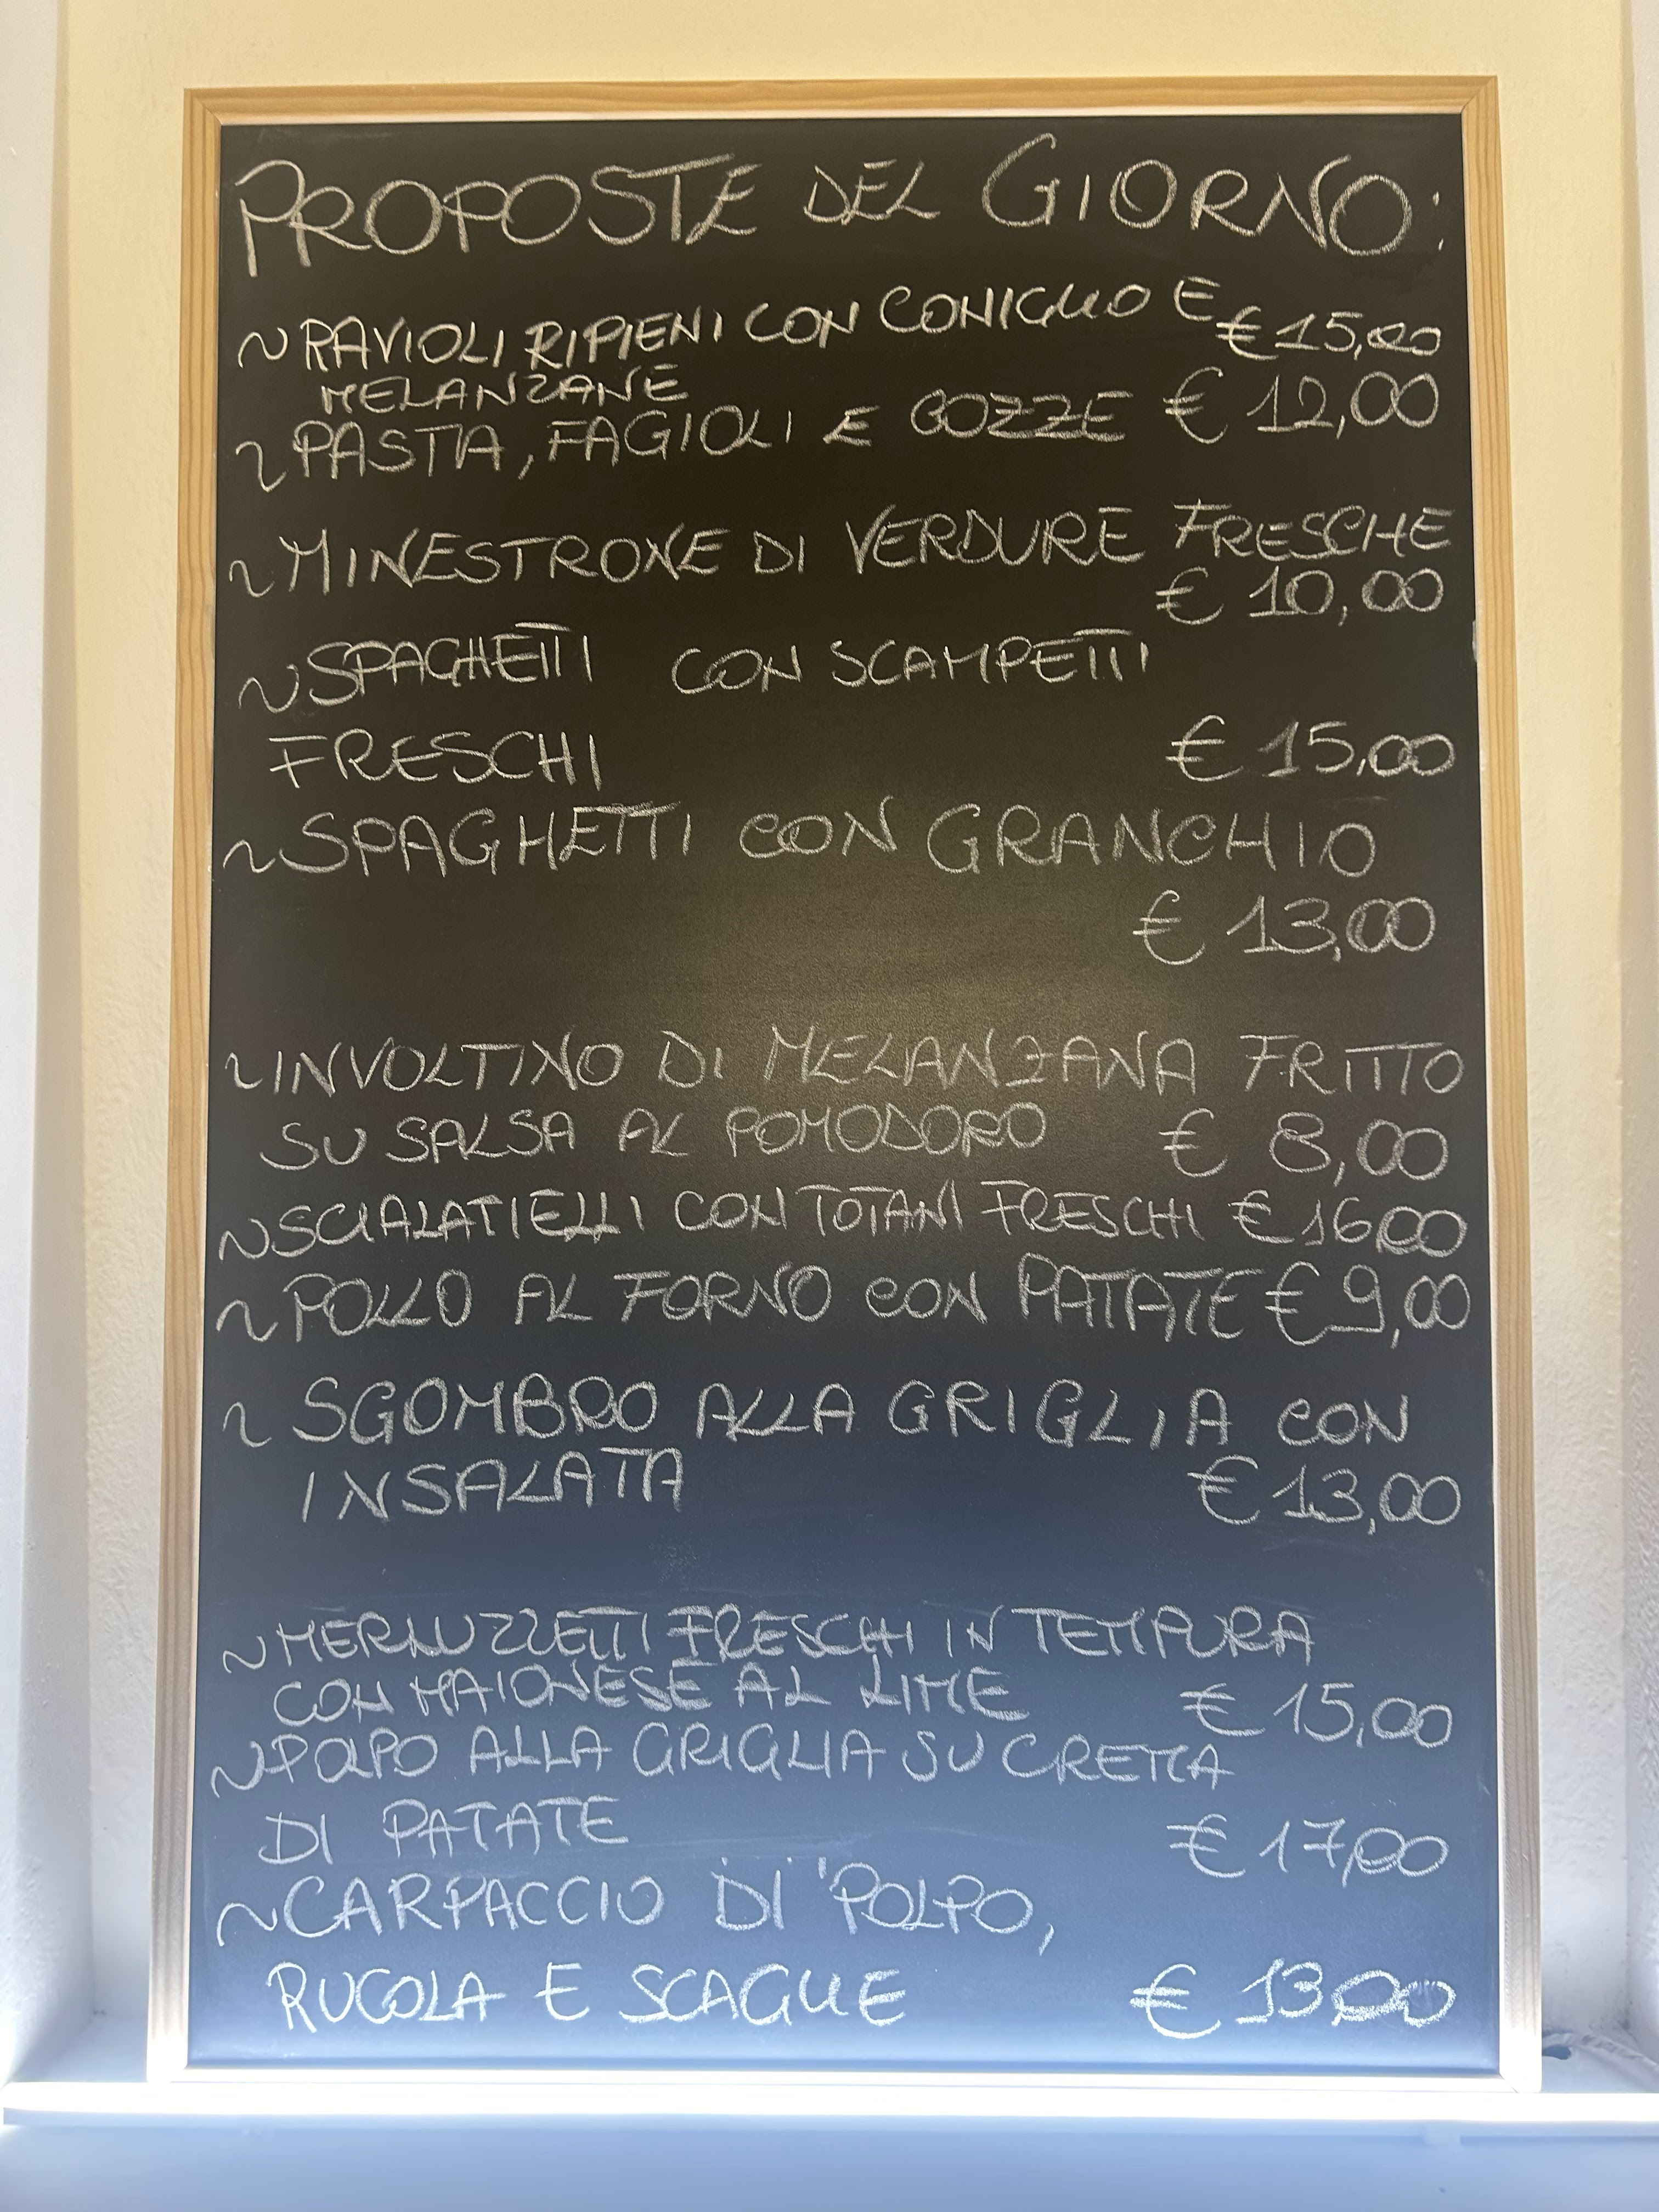 PROPOSTE DEL GIORNO:
~RAVIOLI RIPIENI CON CONIGLIO E € 15,00
MELANZANE
~PASTA, FAGIOLI E COZZE € 12,00
~MINESTRONE DI VERDURE FRESCHE
€ 10,00
~SPAGHETTI CON SCAMPETTI
FRESCHI € 15,00
~SPAGHETTI CON GRANCHIO
€ 13,00
~INVOLTINO DI MELANZANA FRITTO
SU SALSA AL POMODORO € 8,00
~SCIALATIELLI CON TOTANI FRESCHI € 16,00
~POLLO AL FORNO CON PATATE € 9,00
~ SGOMBRO ALLA GRIGLIA CON
INSALATA € 13,00
~MERLUZZETTI FRESCHI IN TEMPURA
CON MAIONESE AL LIME € 15,00
~POLPO ALLA GRIGLIA SU CREMA
DI PATATE € 17,00
~CARPACCIO DI POLPO,
RUCOLA E SCAGLIE € 13,00